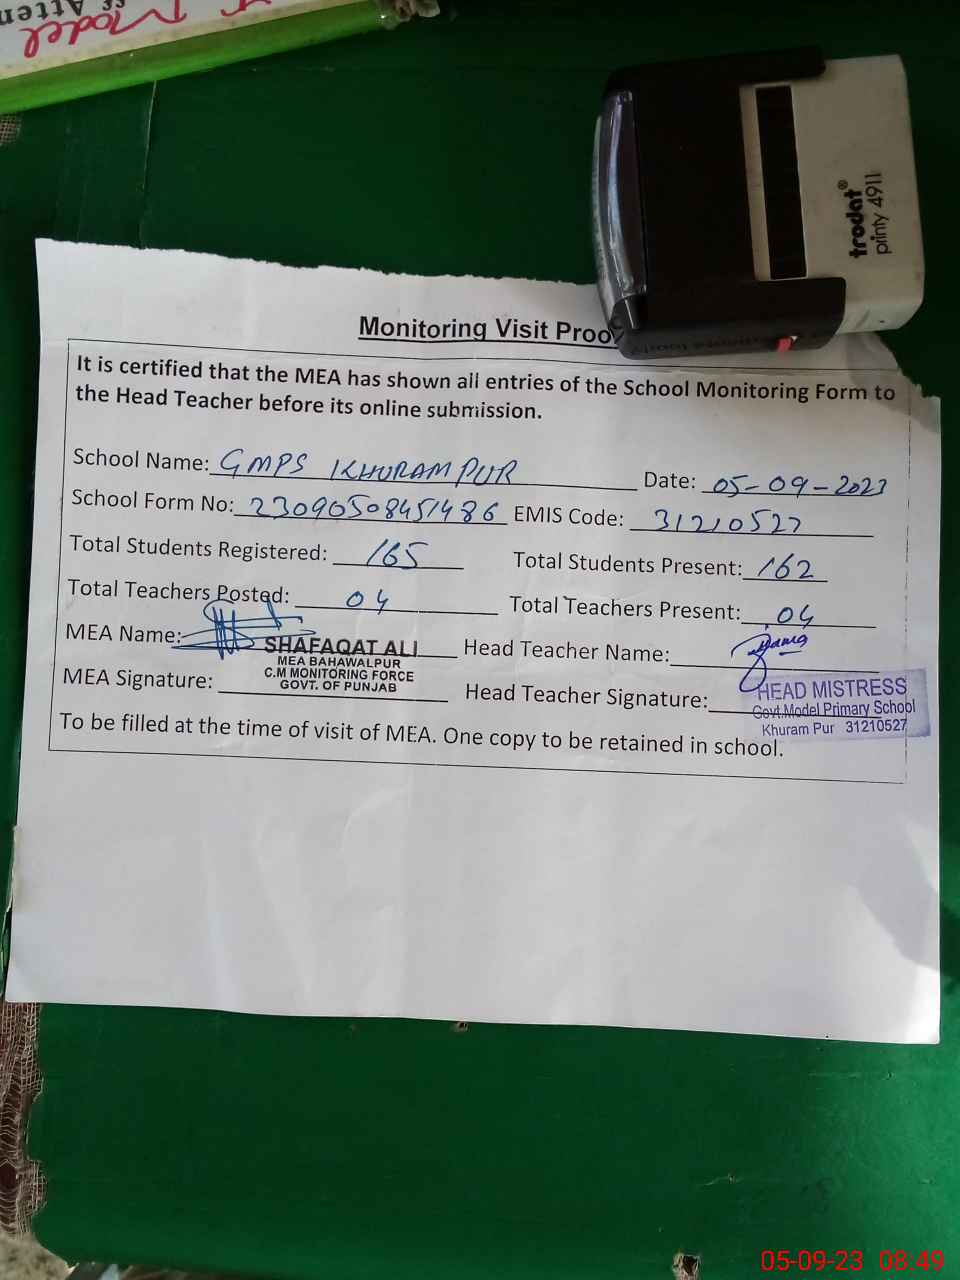 Model
Atten
trodat®
printy 4911
Monitoring Visit Proo
It is certified that the MEA has shown all entries of the School Monitoring Form to
the Head Teacher before its online submission.
School Name: GMPS KHURAMPUR Date: 05-09-2023
School Form No: 23090508451486 EMIS Code: 31210527
Total Students Registered: 165 Total Students Present: 162
Total Teachers Posted: 04 Total Teachers Present: 04
MEA Name: Head Teacher Name:
SHAFAQAT ALI
MEA BAHAWALPUR
C.M MONITORING FORCE
GOVT. OF PUNJAB
MEA Signature: Head Teacher Signature:
HEAD MISTRESS
Govt.Model Primary School
Khuram Pur 31210527
To be filled at the time of visit of MEA. One copy to be retained in school.
05-09-23 08:49